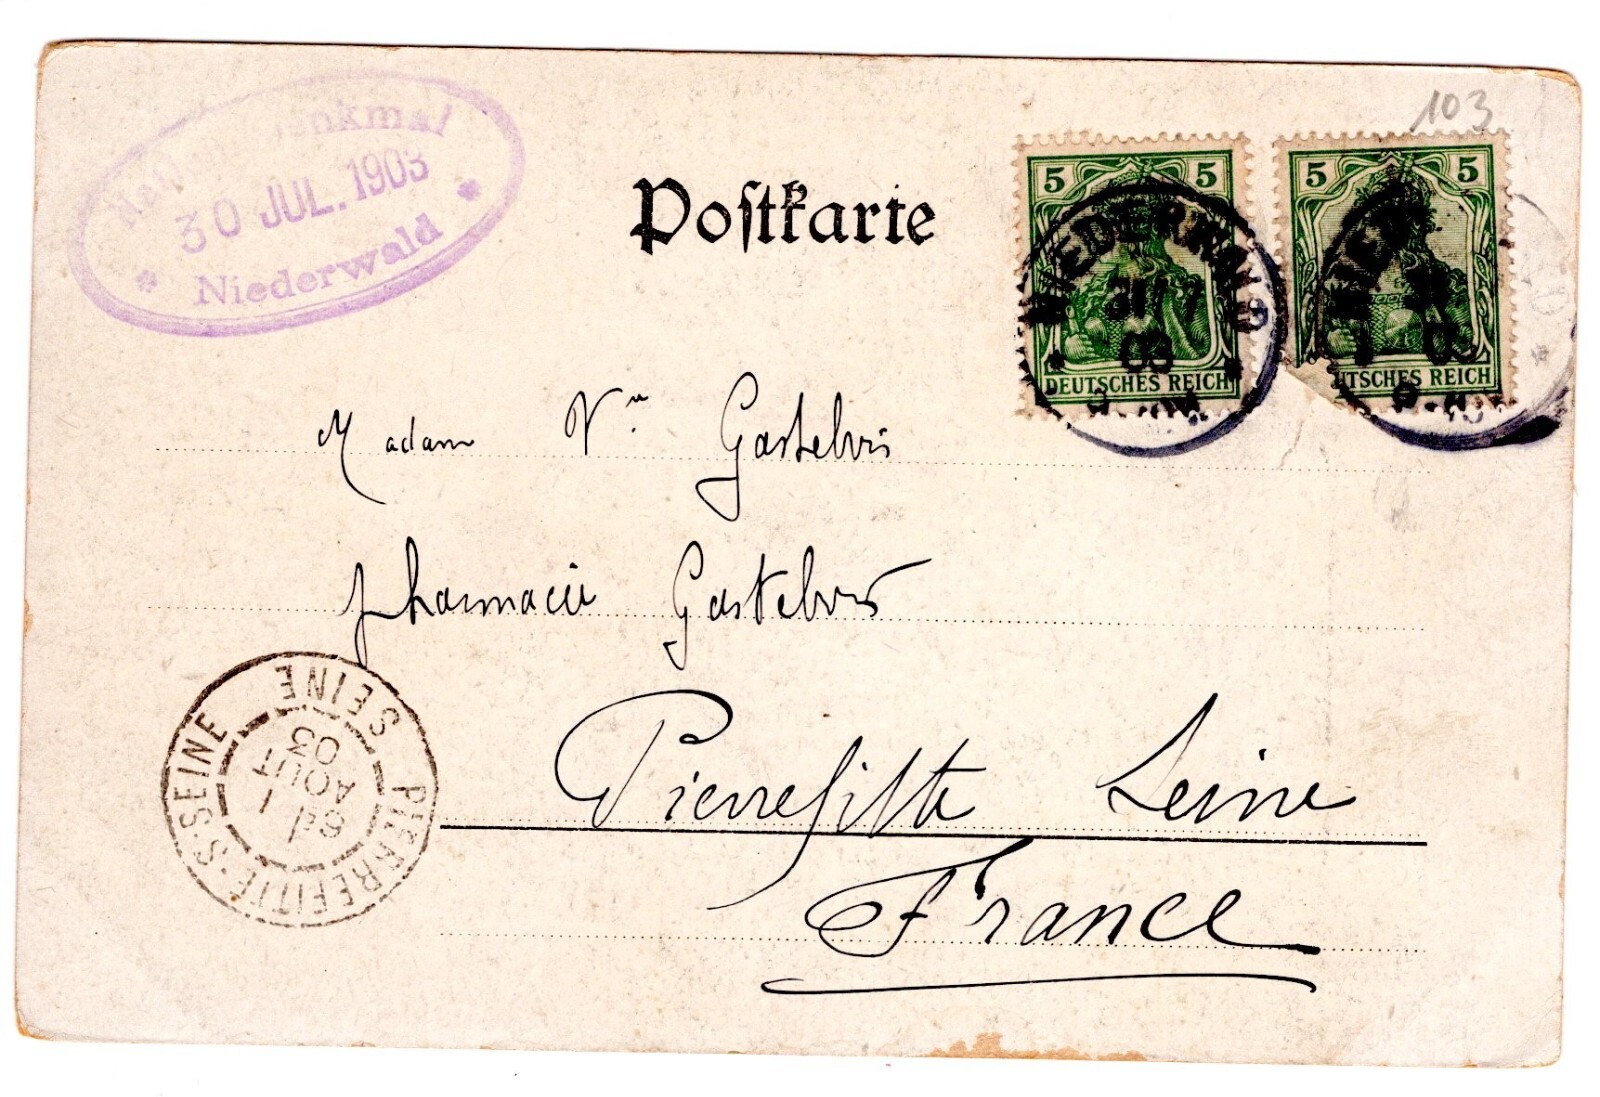 103
Denkmal
30 JUL. 1903
* Niederwald *
Postkarte
5 5
DEUTSCHES REICH
NIEDERWALD
03
5 5
TSCHES REICH
NIED
03
Madame Vve Gastebois
pharmacie Gastebois
Pierrefitte Seine
France
PIERREFITTE-S-SEINE SEINE
6E
1
AOUT
03